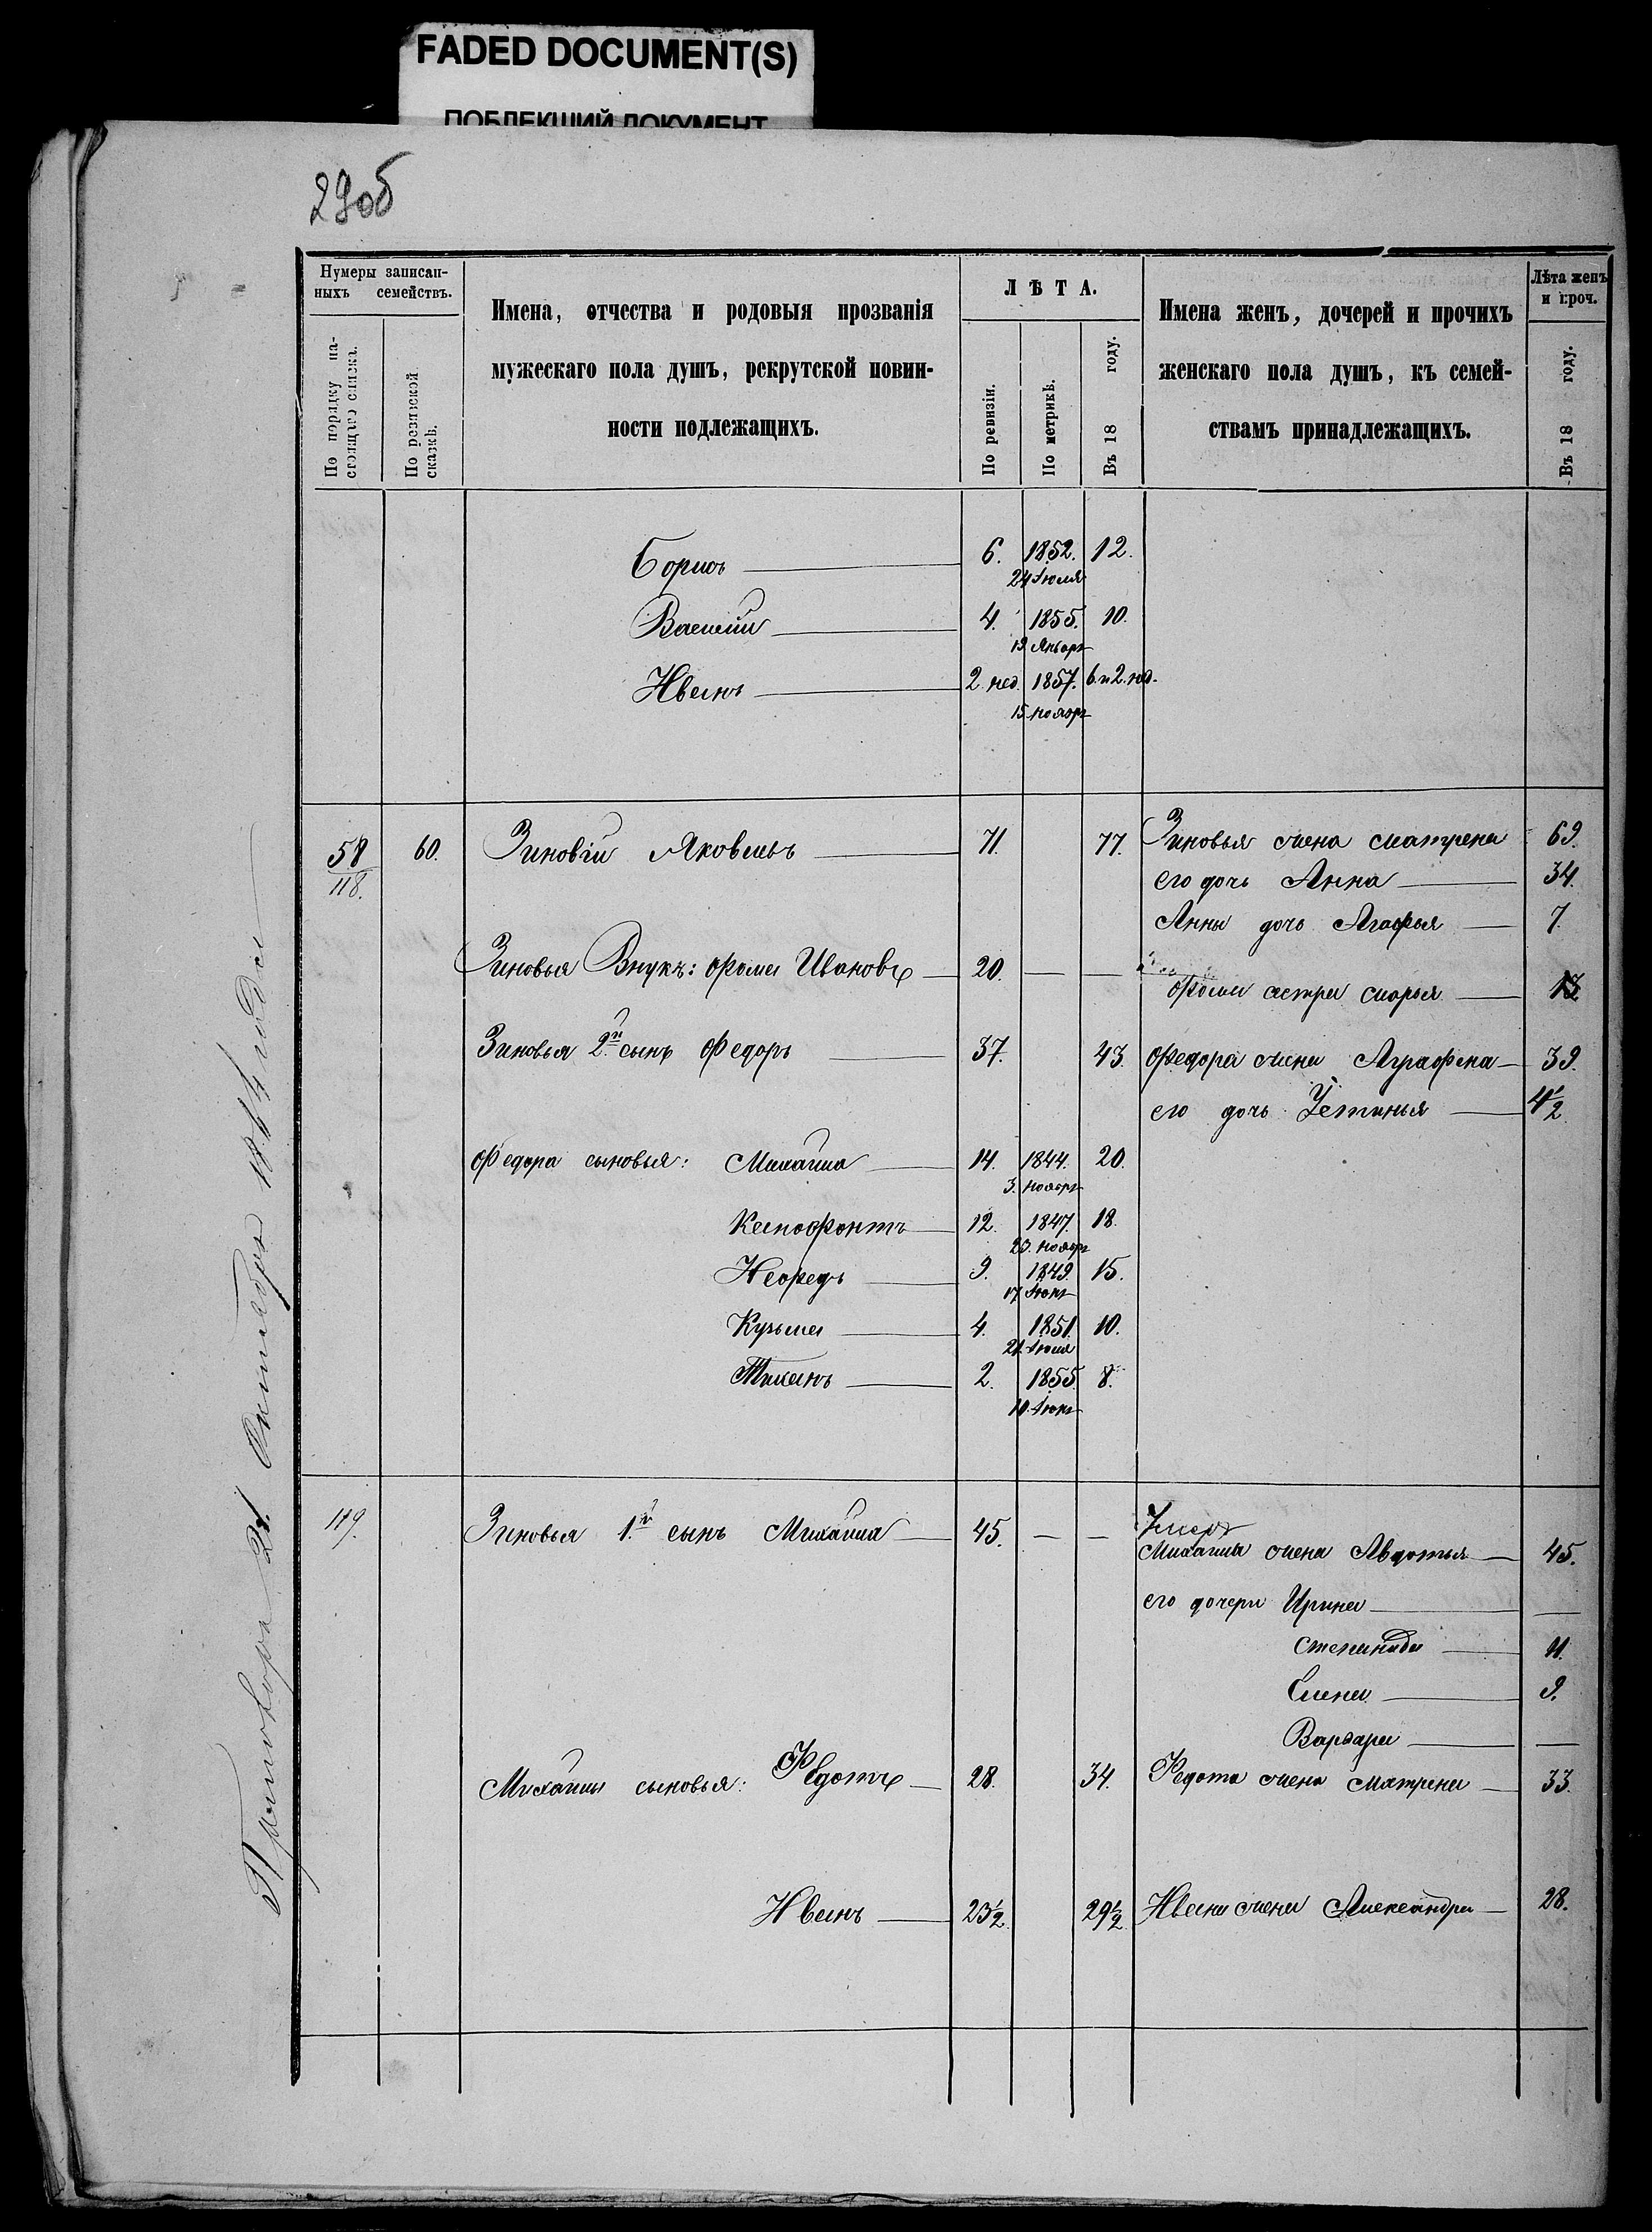 FADED DOCUMENT(S)
ПОБЛЕКШИЙ ДОКУМЕНТ
29об
Нумеры записанныхъ семействъ.
По порядку настоящаго списка.
По ревизской сказкѣ.
Имена, отчества и родовыя прозванія
мужескаго пола душъ, рекрутской повин-
ности подлежащихъ.
ЛѢТА.
По ревизіи.
По метрикѣ.
Въ 18 году.
Имена женъ, дочерей и прочихъ
женскаго пола душъ, къ семей-
ствамъ принадлежащихъ.
Лѣта женъ и проч.
Въ 18 году.
Борисъ 6. 1852. 12.
24 Іюля
Василій 4. 1855. 10.
19 Январ
Иванъ 2 нед. 1857. 6 и 2. нед.
15 ноябр
58 60. Зиновій Яковлевъ 71. 77. Зиновья жена Матрена 69.
118. его дочь Анна 34.
Анны дочь Агафья 7.
Зиновья Внукъ: Фома Ивановъ 20. — —
Фомы сестра Марья
Зиновья 2й сынъ Федоръ 37. 43. Федора жена Аграфена 39.
его дочь Устинья 4½
Федора сыновья: Михайла 14. 1844. 20.
3. ноябр
Ксенофонтъ 12. 1847. 18.
23. ноябр
Нефедъ 9. 1849. 15.
17 Іюня
Кузьма 4. 1851. 10.
Іюля
Тиханъ 2. 1855. 8.
10. Іюня
119. Зиновья 1й сынъ Михайла 45. — — Умеръ
Михайлы жена Авдотья 45.
его дочери Ирина —
Степанида 11.
Елена 9.
Варвара —
Михайлы сыновья: Федотъ 28. 34. Федота жена Матрена 33.
Иванъ 23½ 29½ Ивана жена Александра 28.
Приговора 21 Октября 1864 года